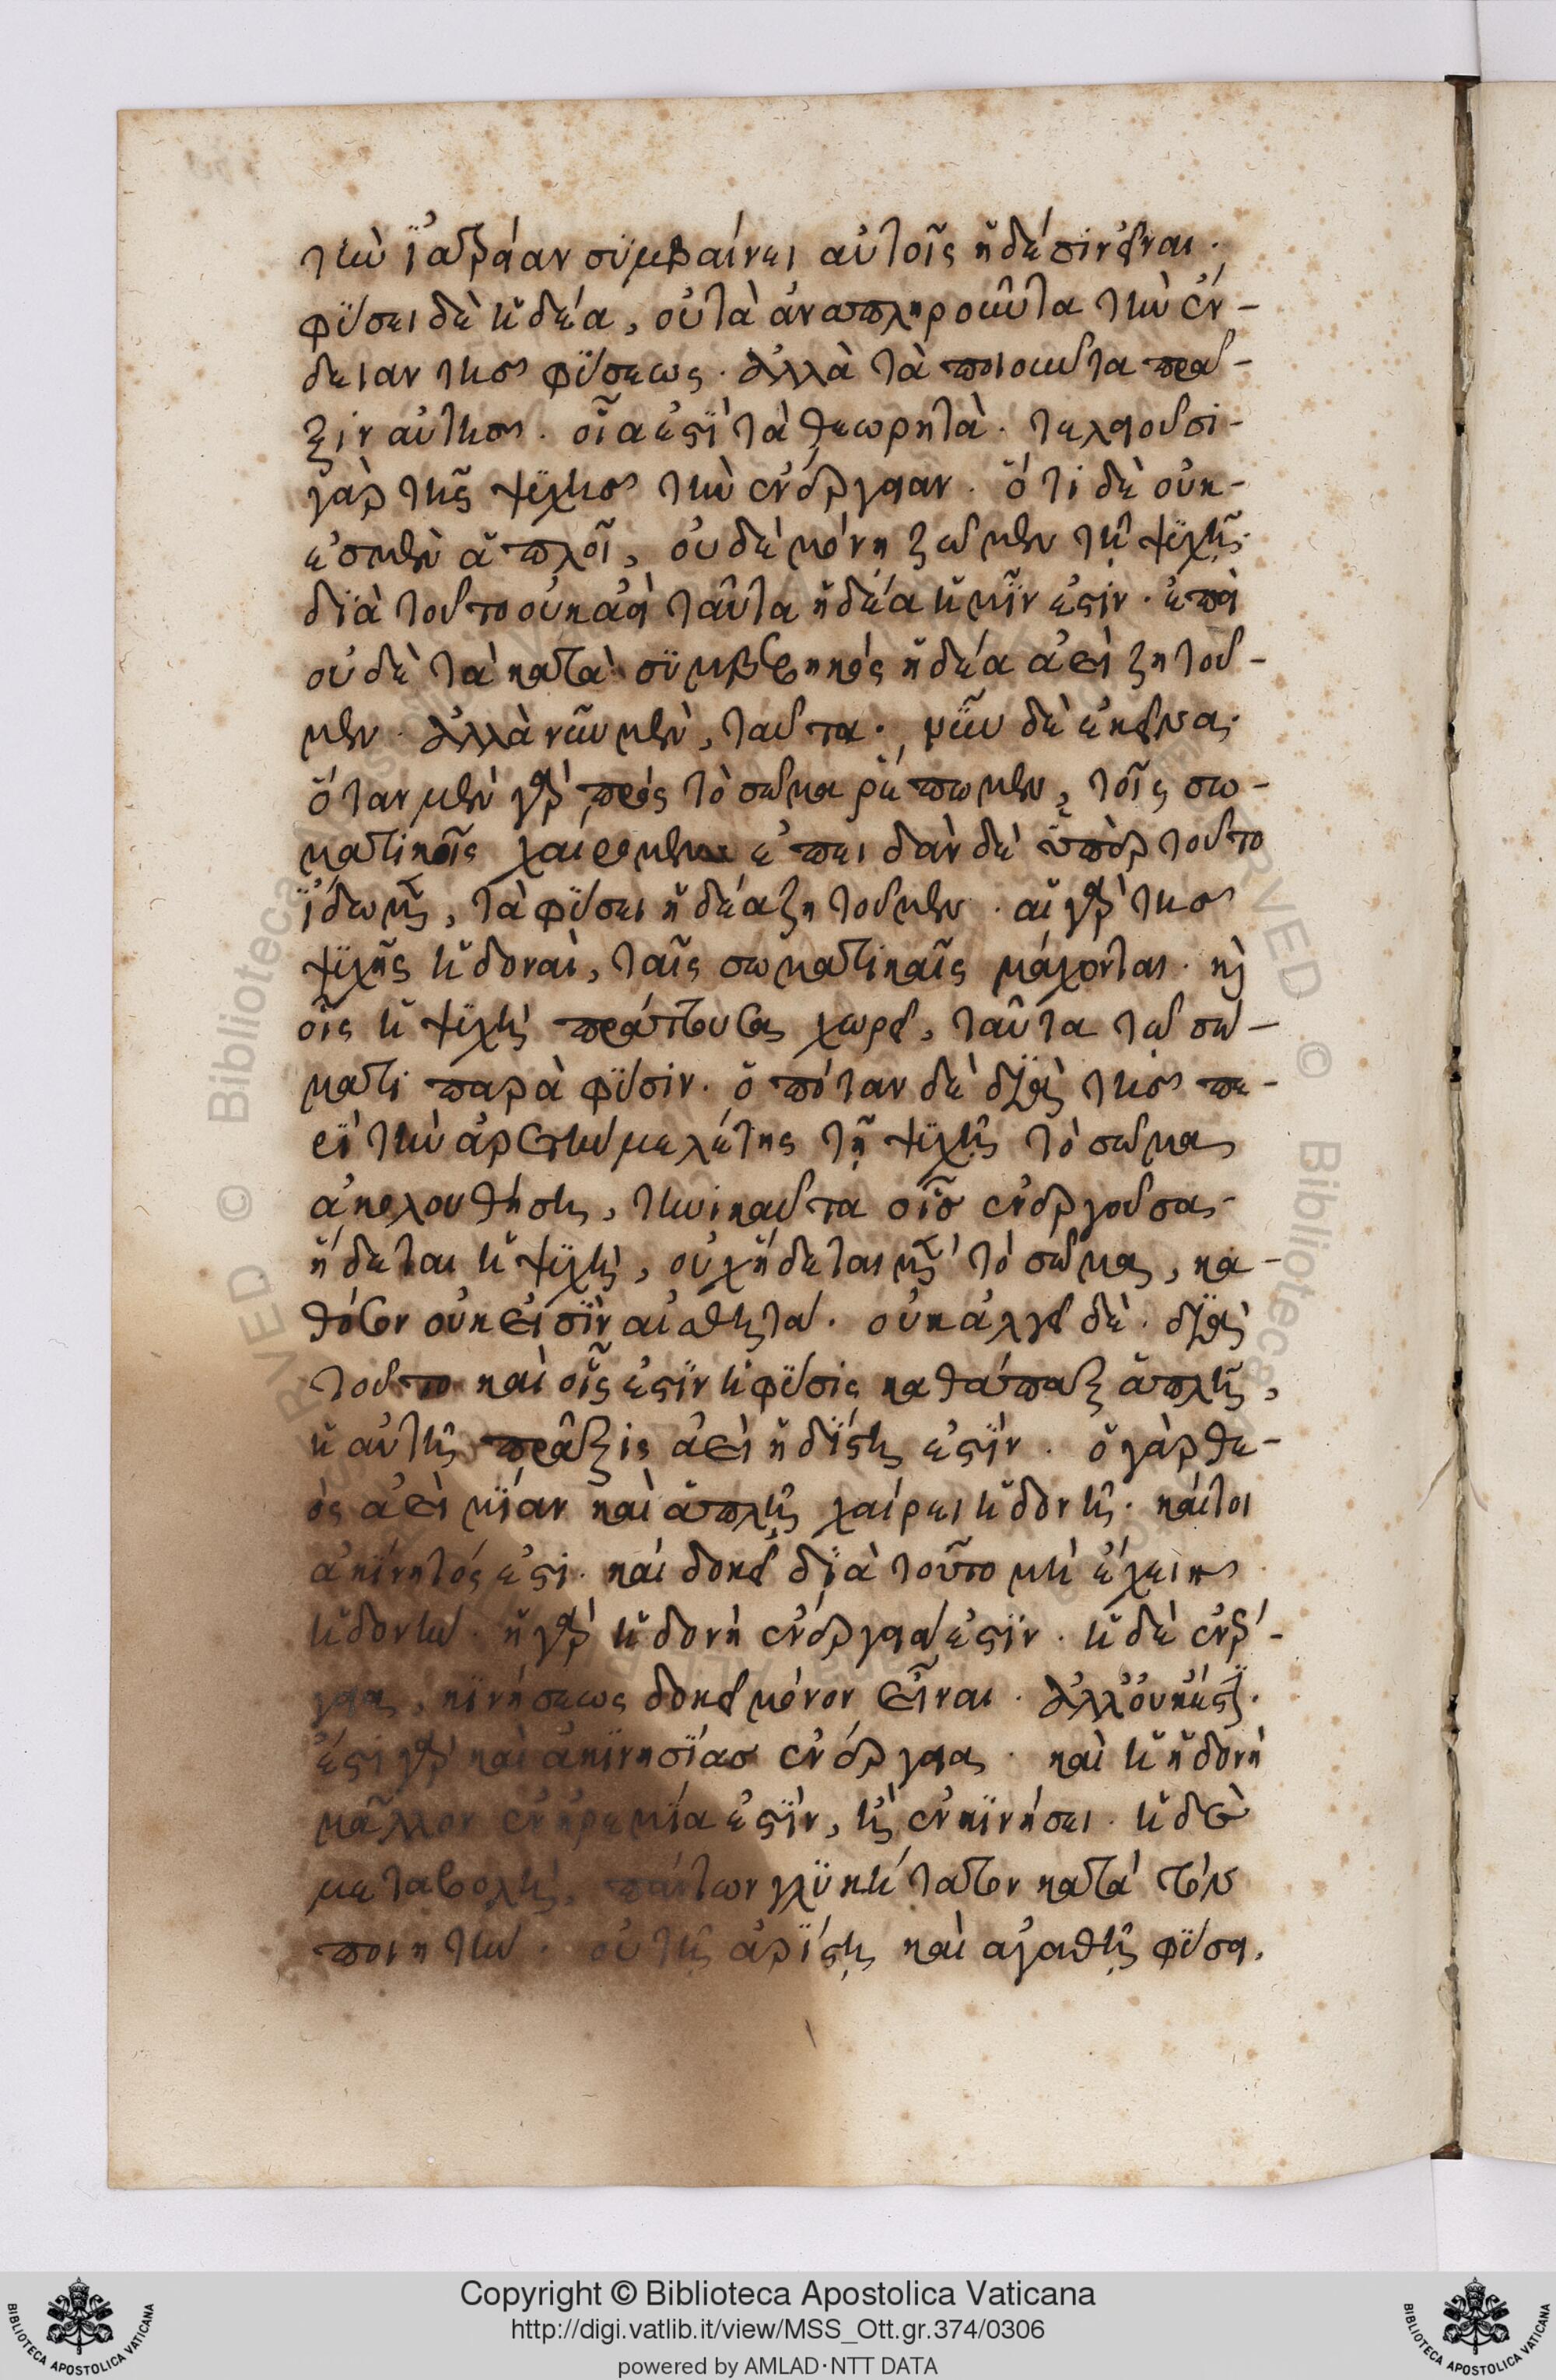 τὴν ἰατρείαν συμβαίνει αὐτοῖς ἡδέσιν εἶναι.
φύσει δὲ ἡδέα, οὐ τὰ ἀναπληροῦντα τὴν ἔν-
δειαν τῆς φύσεως. ἀλλὰ τὰ ποιοῦντα πρᾶ-
ξιν αὐτῆς. οἷα ἐστὶ τὰ θεωρητὰ. τελειοῦσι-
γὰρ τῆς ψυχῆς τὴν ἐνέργειαν. ὅτι δὲ οὐκ-
ἐσμὲν ἁπλοῖ, οὐδὲ μόνῃ ζῶμεν τῇ ψυχῇ.
διὰ τοῦτο οὐκ ἀεὶ ταῦτα ἡδέα ἡμῖν ἐστίν. ἐπεὶ
οὐδὲ τὰ κατὰ συμβεβηκός ἡδέα ἀεὶ ζητοῦ-
μεν. ἀλλὰ νῦν μὲν, ταῦτα. νῦν δὲ ἐκεῖνα.
ὅταν μὲν γὰρ πρός τὸ σῶμα ῥέπωμεν, τοῖς σω-
ματικοῖς χαίρομεν ἐπειδὰν δὲ ὑπὲρ τοῦτο
ἴδωμεν, τὰ φύσει ἡδέα ζητοῦμεν. αἱ γὰρ τῆς
ψυχῆς ἡδοναὶ, ταῖς σωματικαῖς μάχονται. καὶ
οἷς ἡ ψυχὴ πράττουσα χωρεῖ, ταῦτα τῷ σώ-
ματι παρὰ φύσιν. ὁπόταν δὲ διὰ τῆς πε-
ρὶ τὴν ἀρετὴν μελέτης τῇ ψυχῇ τὸ σῶμα
ἀκολουθήσῃ, τηνικαῦτα οἷς ἐνεργοῦσα-
ἥδεται ἡ ψυχὴ, οὐχ ἥδεται μὲν τὸ σῶμα, κα-
θόσον οὐκ εἰσὶν αἰσθητά. οὐκ ἀλγεῖ δὲ. διὰ
τοῦτο καὶ οἷς ἐστὶν ἡ φύσις καθάπαξ ἁπλῆ,
ἡ αὐτὴ πρᾶξις ἀεὶ ἡδίστη ἐστὶν. ὁ γὰρ θε-
ὸς ἀεὶ μίαν καὶ ἁπλῆ χαίρει ἡδονῇ. καίτοι
ἀκίνητός ἐστι. καί δοκεῖ διὰ τοῦτο μὴ ἔχειν
ἡδονήν. ἡ γὰρ ἡδονὴ ἐνέργειά ἐστὶν. ἡ δὲ ἐνέρ-
γεια, κινήσεως δοκεῖ μόνον εἶναι. ἀλλ' οὐκ ἔστι.
ἔστι γὰρ καὶ ἀκινησίας ἐνέργεια. καὶ ἡ ἡδονὴ
μᾶλλον ἐν ἠρεμίᾳ ἐστὶν, ἢ ἐν κινήσει. ἡ δὲ
μεταβολὴ, πάντων γλυκύτατον κατὰ τὸν
ποιητήν. οὐ τῇ ἀρίστῃ καὶ ἀγαθῇ φύσει,
Copyright © Biblioteca Apostolica Vaticana
http://digi.vatlib.it/view/MSS_Ott.gr.374/0306
powered by AMLAD·NTT DATA